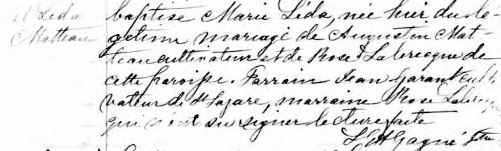 M. Lida
Matteau
baptisé Marie Lida, née hier, du lé-
gitime mariage de Augustin Mat-
teau cultivateur et de Rose Laberecque de
cette paroisse. Parrain Jean Garant culti
vateur de St Lazare, marraine Rose
qui n'ont su signer lecture faite
Gagné